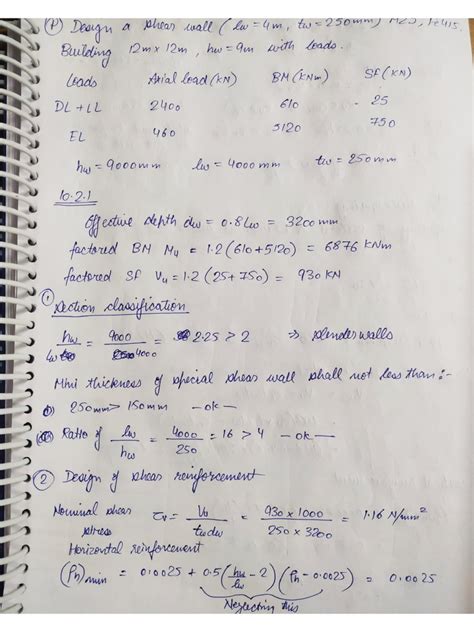 (P) Design a shear wall ( lw = 4m, tw = 250mm) M25, Fe415.
Building 12m x 12m, hw = 9m with loads.
Loads Axial load (KN) BM (KNm) SF (KN)
DL + LL 2400 610 25
EL 460 5120 750
hw = 9000mm lw = 4000 mm tw = 250mm
10.2.1
Effective depth dw = 0.8 lw = 3200 mm
factored BM Mu = 1.2 (610 + 5120) = 6876 KNm
factored SF Vu = 1.2 (25 + 750) = 930 KN
① Section classification
hw/lw = 9000/4000 = 2.25 > 2 ⇒ slender walls
Mini thickness of special shear wall shall not less than :-
250mm > 150mm - ok —
Ratio of lw/hw = 4000/250 = 16 > 4 — ok —
② Design of shear reinforcement
Nominal shear stress τv = Vu/tw dw = 930 x 1000/250 x 3200 = 1.16 N/mm²
Horizontal reinforcement
(Ph)min = 0.0025 + 0.5 (hw/lw - 2) (Ph - 0.0025) = 0.0025
Neglecting this